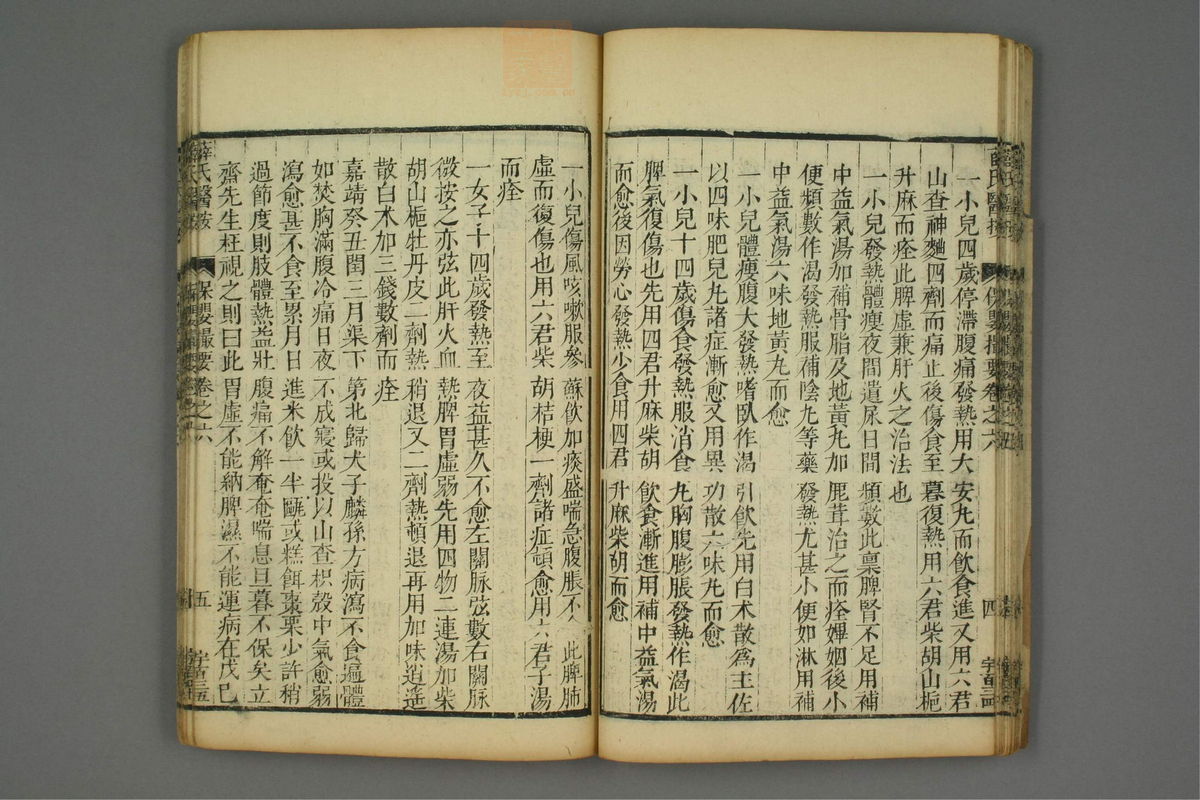 薛氏醫按
保嬰撮要卷之六
四
一小兒四歲停滯腹痛發熱用大安丸而飲食進又用六君
山查神麯四劑而痛止後傷食至暮復熱用六君柴胡山梔
升麻而痊此脾虛兼肝火之治法也
一小兒發熱體瘦夜間遺尿日間頻數此稟脾腎不足用補
中益氣湯加補骨脂及地黃丸加鹿茸治之而痊嬋姻後小
便頻數作渴發熱服補陰丸等藥發熱尤甚小便如淋用補
中益氣湯六味地黃丸而愈
一小兒體瘦腹大發熱嗜臥作渴引飲先用白术散為主佐
以四味肥兒丸諸症漸愈又用異功散六味丸而愈
一小兒十四歲傷食發熱服消食丸胸腹膨脹發熱作渴此
脾氣復傷也先用四君升麻柴胡飲食漸進用補中益氣湯
而愈後因勞心發熱少食用四君升麻柴胡而愈
一小兒傷風咳嗽服參蘇飲加痰盛喘急腹脹不 此脾肺
虛而復傷也用六君柴胡桔梗一劑諸症頓愈用六君子湯
而痊
一女子十四歲發熱至夜益甚久不愈左關脉弦數右關脉
微按之亦弦此肝火血熱脾胃虛弱先用四物二連湯加柴
胡山梔牡丹皮一劑熱稍退又二劑熱頓退再用加味逍遙
散白术加三錢數劑而痊
嘉靖癸丑閏三月渠下第北歸犬子麟孫方病瀉不食遍體
如焚胸滿腹冷痛日夜不成寢或投以山查枳殼中氣愈弱
瀉愈甚不食至累月日進米飲一半甌或糕餌棗栗少許稍
過節度則肢體熱益壯腹痛不解奄奄喘息旦暮不保矣立
齋先生枉視之則曰此胃虛不能納脾濕不能運病在戊己
薛氏醫按
保嬰撮要卷之六
五